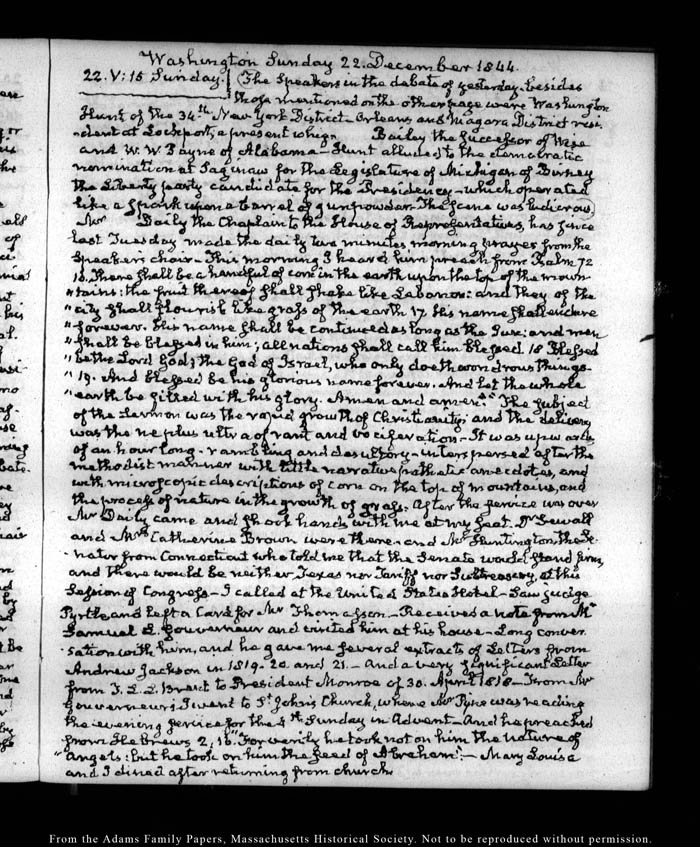 Washington Sunday 22. December 1844.
22. V:15 Sunday. The Speakers in the debate of yesterday, besides
those mentioned on the other page were Washington
Hunt of the 34th New York District Orleans and Niagara District resi
dent at Lockport, a present whig Bailey the successor of Wise
and W. W. Payne of Alabama—Hunt alluded to the democratic
nomination at Saginaw for the Legislature of Michigan of Birney
the Liberty party candidate for the Presidency—which operated
like a spark upon a barrel of gunpowder. The scene was ludicrous.
Mr Daily the Chaplain to the House of Representatives, has since
last Tuesday made the daily two minutes morning prayer from the
Speakers chair—This morning I heard him preach from Psalm 72
16. There shall be a handful of corn in the earth upon the top of the moun
"tains: the fruit thereof shall shake like Lebanon: and they of the
"city shall flourish like grass of the earth 17. His name shall endure
"forever. His name shall be continued as long as the Sun: and men
"shall be blessed in him; all nations shall call him blessed. 18 Blessed
"be the Lord God, the God of Israel, who only doeth wondrous things—
"19. And blessed be his glorious name forever. And let the whole
"earth be filled with his glory. Amen and amen." The subject
of the sermon was the rapid growth of Christianity; and the delivery
was the ne plus ultra of rant and vociferation—It was upwards
of an hour long—rambling and desultory—interspersed after the
methodist manner with little narrative pathetic anecdotes, and
with microscopic descriptions of corn on the top of mountains, and
the process of nature in the growth of grass. After the service was over
Mr Daily came and shook hands with me at my seat. Dr Sewall
and Mrs Catherine Brown were there—and Mr Huntington the Se
nator from Connecticut who told me that the Senate would stand firm,
and there would be neither Texas nor Tariff nor Subtreasury, at this
Session of Congress—I called at the United States Hotel—Saw Judge
Pyrtle and left a Card for Mr Thomasson—Received a note from Mr
Samuel L. Gouverneur and visited him at his house—Long conver
sation with him, and he gave me several extracts of Letters from
Andrew Jackson in 1819. 20. and 21.—And a very significant Letter
from to President Monroe of 30. April 1818—From Mr
Gouverneur's I went to St John's Church, where Mr Pyne was reading
the evening service for the 4th Sunday in Advent—And he preached
from Hebrews 2, 16. "For verily he took not on him the nature of
"angels: but he took on him the seed of Abraham."—Mary Louisa
and I dined after returning from church.
From the Adams Family Papers, Massachusetts Historical Society. Not to be reproduced without permission.